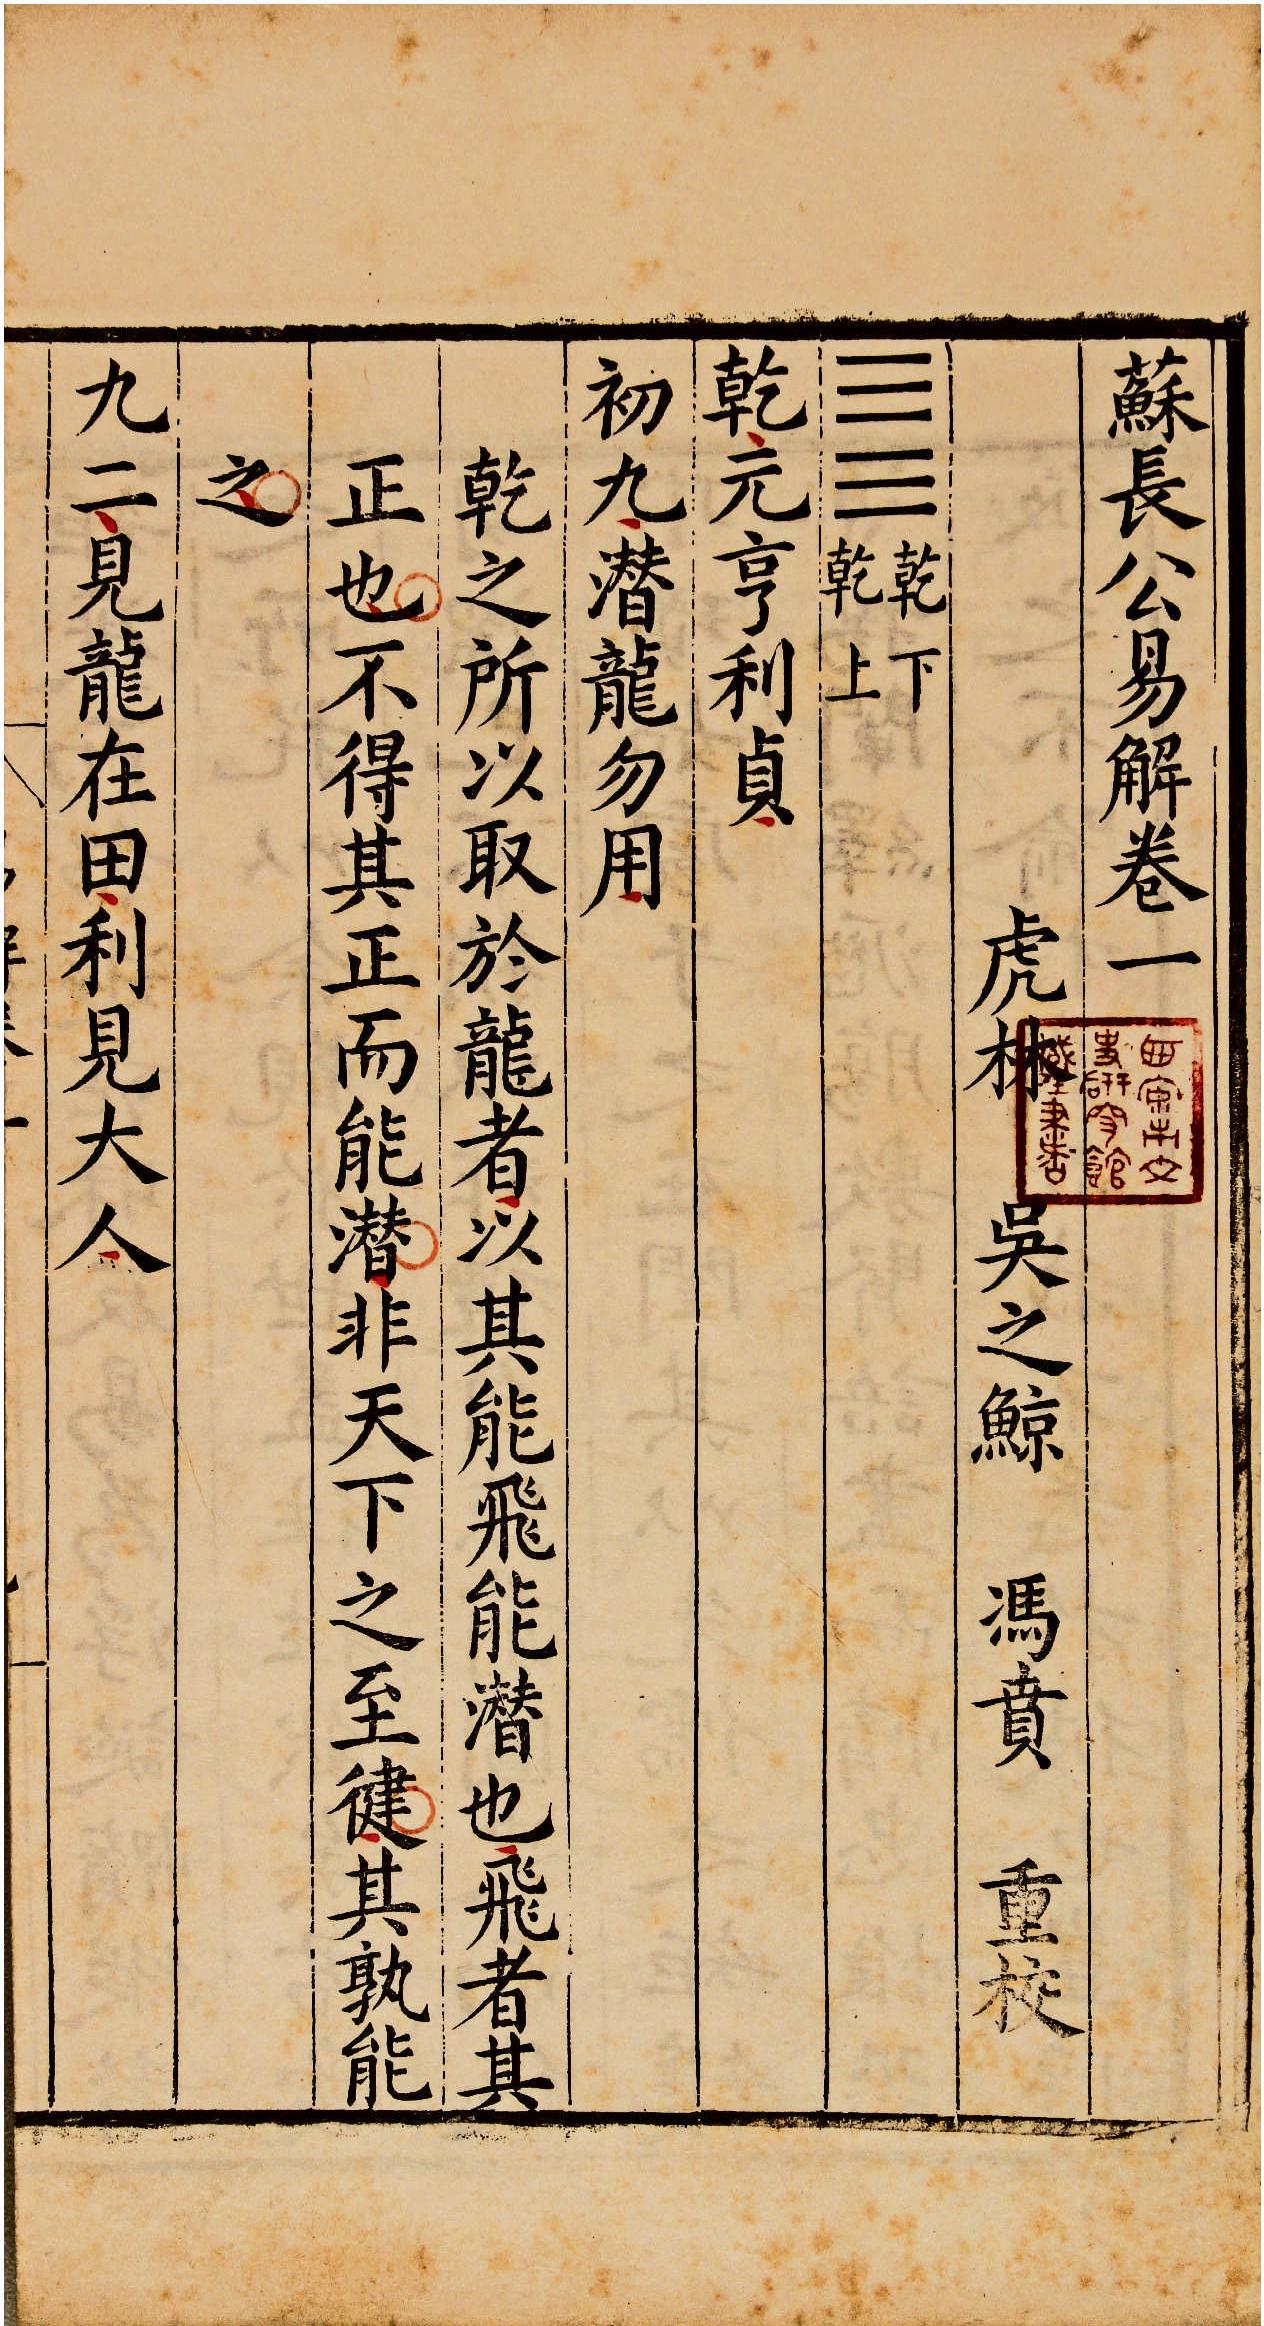 蘇長公易解卷一
虎林 吳之鯨 馮賁 重校
䷀ 乾下乾上
乾元亨利貞
初九潛龍勿用
乾之所以取於龍者以其能飛能潛也飛者其
正也不得其正而能潛非天下之至徤其孰能
之
九二見龍在田利見大人